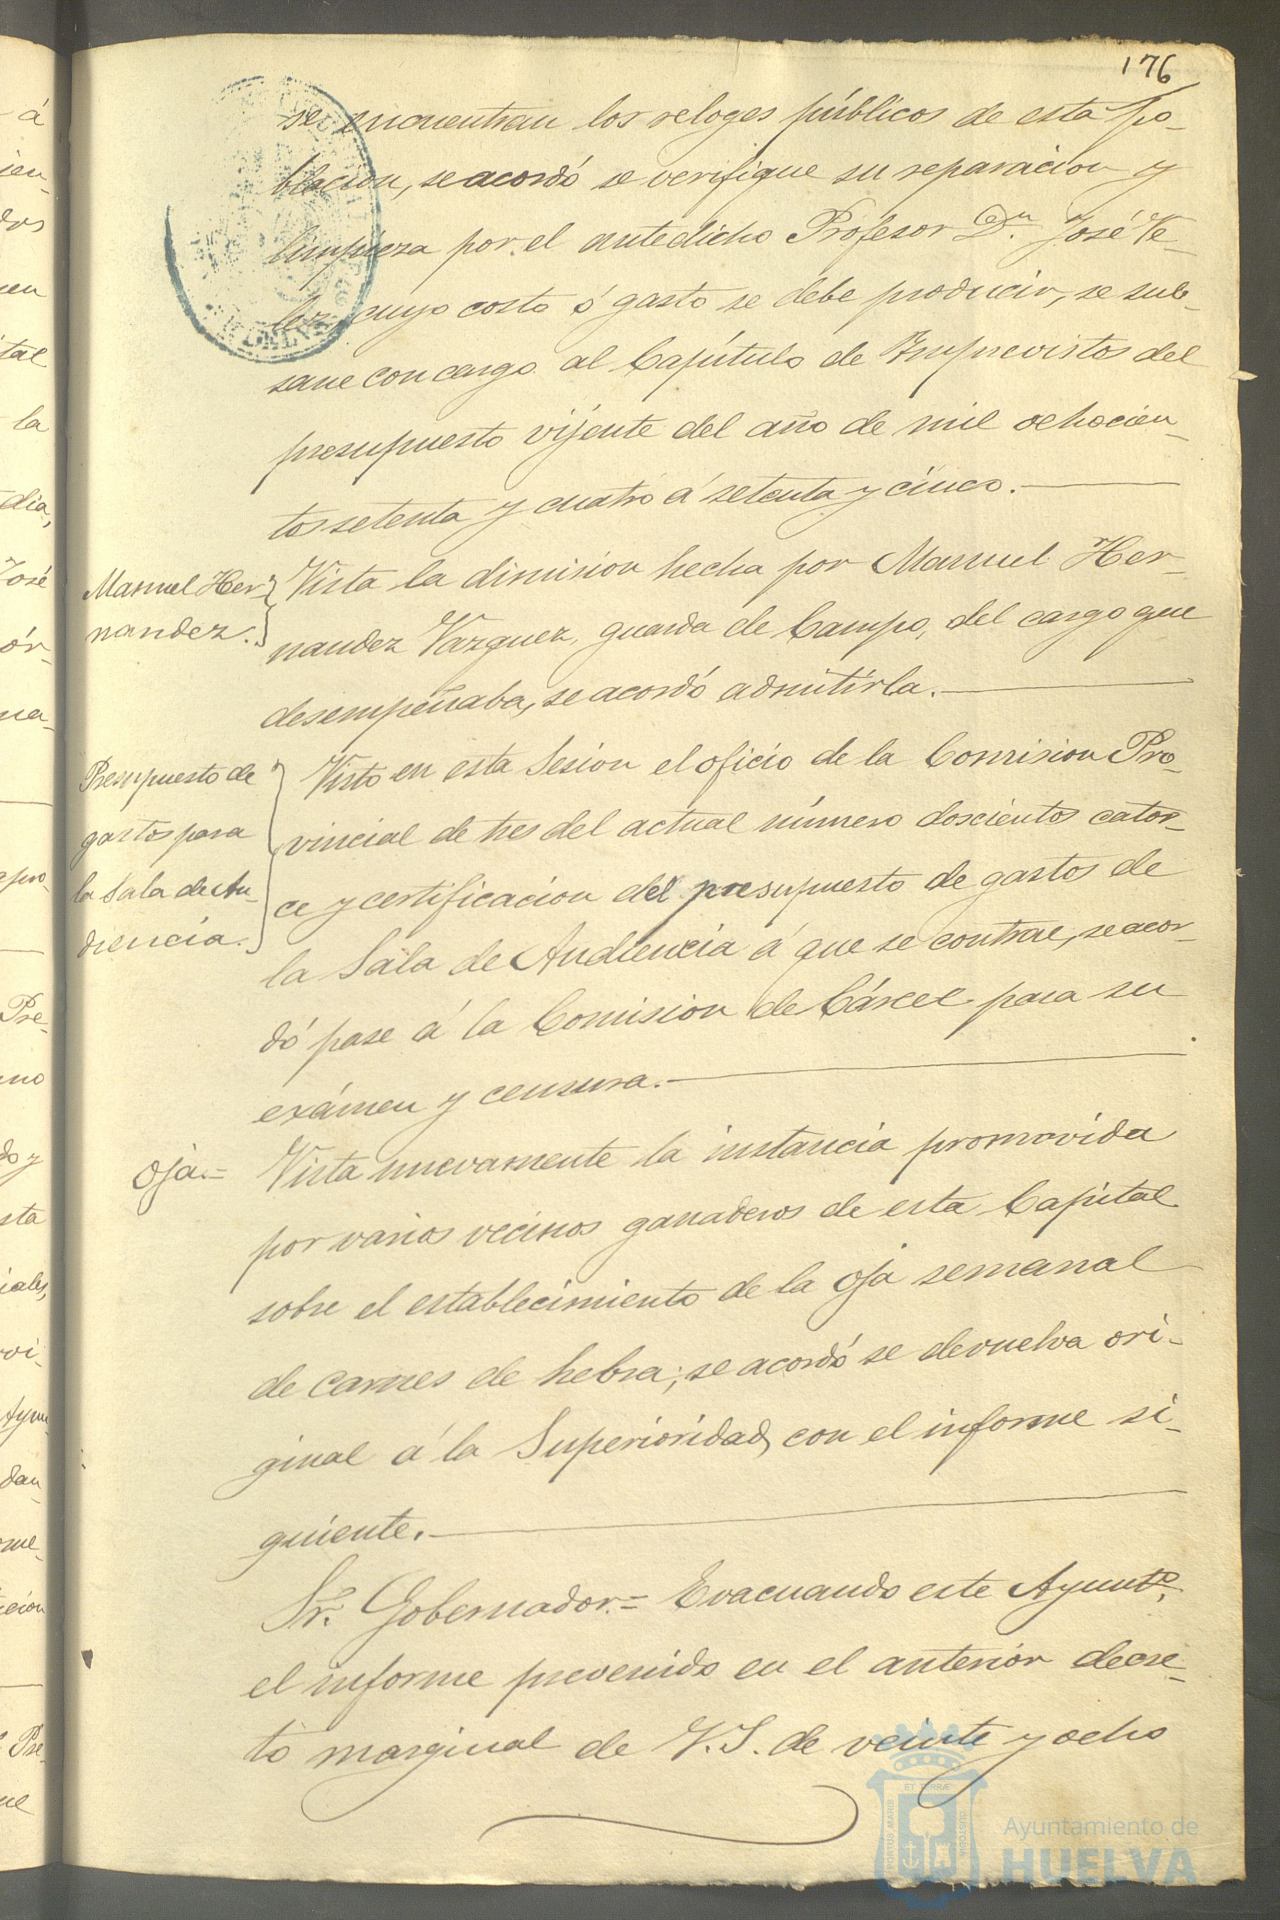 176
se encuentran los reloges públicos de esta po-
blacion, se acordó se verifique su reparacion y
limpieza por el antedicho Profesor D.n José Ve-
lez, cuyo costo ó gasto se debe producir, se sub-
sane con cargo al Capítulo de Imprevistos del
presupuesto vijente del año de mil ochocien-
tos setenta y cuatro á setenta y cinco.
Manuel Her-
nandez.
Vista la dimision hecha por Manuel Her-
nandez Vazquez, guarda de Campo, del cargo que
desempeñaba, se acordó admitirla.
Presupuesto de
gastos para
la Sala de Au-
diencia.
Visto en esta Sesion el oficio de la Comision Pro-
vincial de tres del actual número doscientos cator-
ce y certificacion del presupuesto de gastos de
la Sala de Audiencia á que se contrae, se acor-
dó pase á la Comision de Cárcel para su
exámen y censura.
Oja.=
Vista nuevamente la instancia promovida
por varios vecinos ganaderos de esta Capital
sobre el establecimiento de la Oja semanal
de carnes de hebra; se acordó se devuelva ori-
ginal á la Superioridad, con el informe si-
guiente.
Sr. Gobernador.= Evacuando este Ayunt.o
el informe prevenido en el anterior decre-
to marginal de V.S. de veinte y ocho
ET TERRÆ
PORTUS MARIS
CUSTODIA
Ayuntamiento de
HUELVA